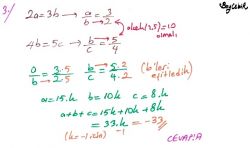 3-)
2a=3b → a/b = 3/2
okek(2,5)=10
olmalı
4b=5c → b/c = 5/4
a/b = 3.5/2.5 b/c = 5.2/4.2 (b'leri eşitledik)
a=15.k b=10k c=8.k
a+b+c=15k+10k+8k
=33.k=-33
(k=-1 için) -1
CEVAP:A